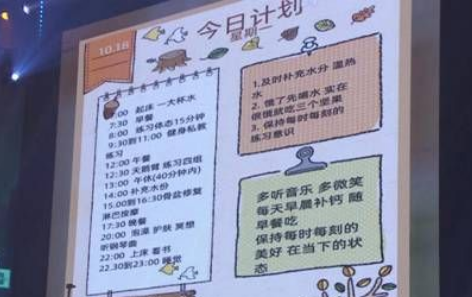 10.16
今日计划
星期一
7:00 起床 一大杯水
7:30 早餐
8:00 练习体态15分钟
9:30到11:00 健身私教
练习
12:00 午餐
12:30 天鹅臂 练习四组
13:00 午休(40分钟内)
14:00 补充水份
15.00到16:30骨盆修复
淋巴按摩
17:30 晚餐
20:00 泡澡 护肤 冥想
听钢琴曲
22:00 上床 看书
22.30到23:00 睡觉
1.及时补充水分 温热
水
2. 饿了先喝水 实在
很饿就吃三个坚果
3. 保持每时每刻的
练习意识
多听音乐 多微笑
每天早晨补钙 随
早餐吃
保持每时每刻的
美好 在当下的状
态